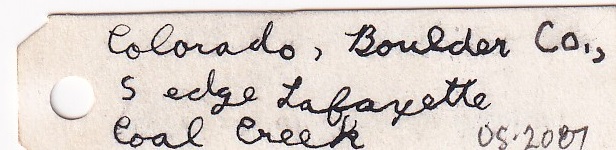 Colorado, Boulder Co.,
S edge Lafayette
Coal Creek OS-2007